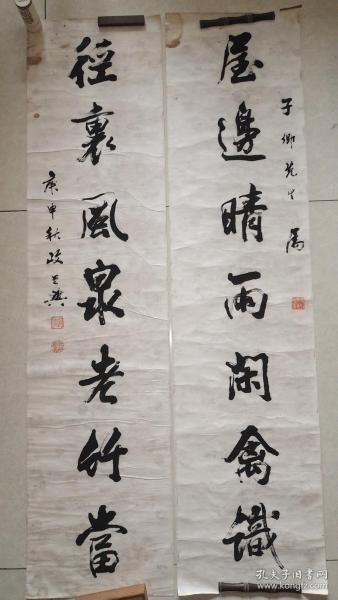 屋邊晴雨閑禽識
子卿先生屬
徑裏風泉老竹當
庚申秋
孔夫子旧书网
www.kongfz.com